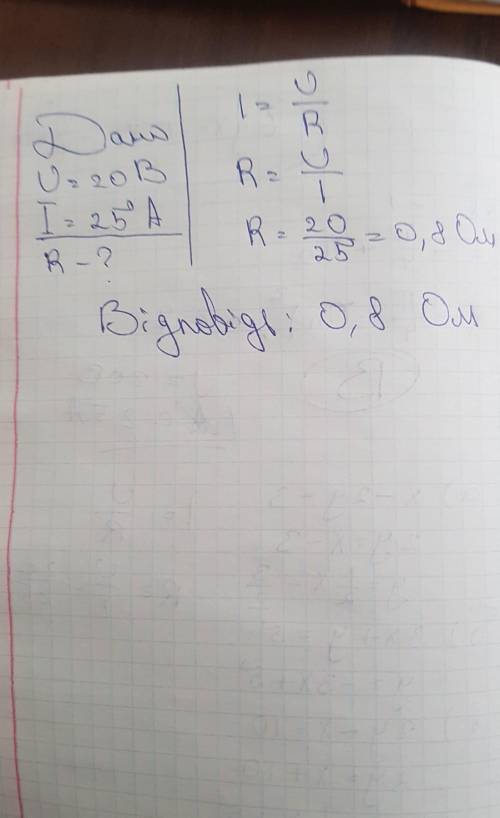 Дано
U = 20 В
I = 25 А
R - ?
I = U/R
R = U/I
R = 20/25 = 0,8 Ом
Відповідь: 0,8 Ом